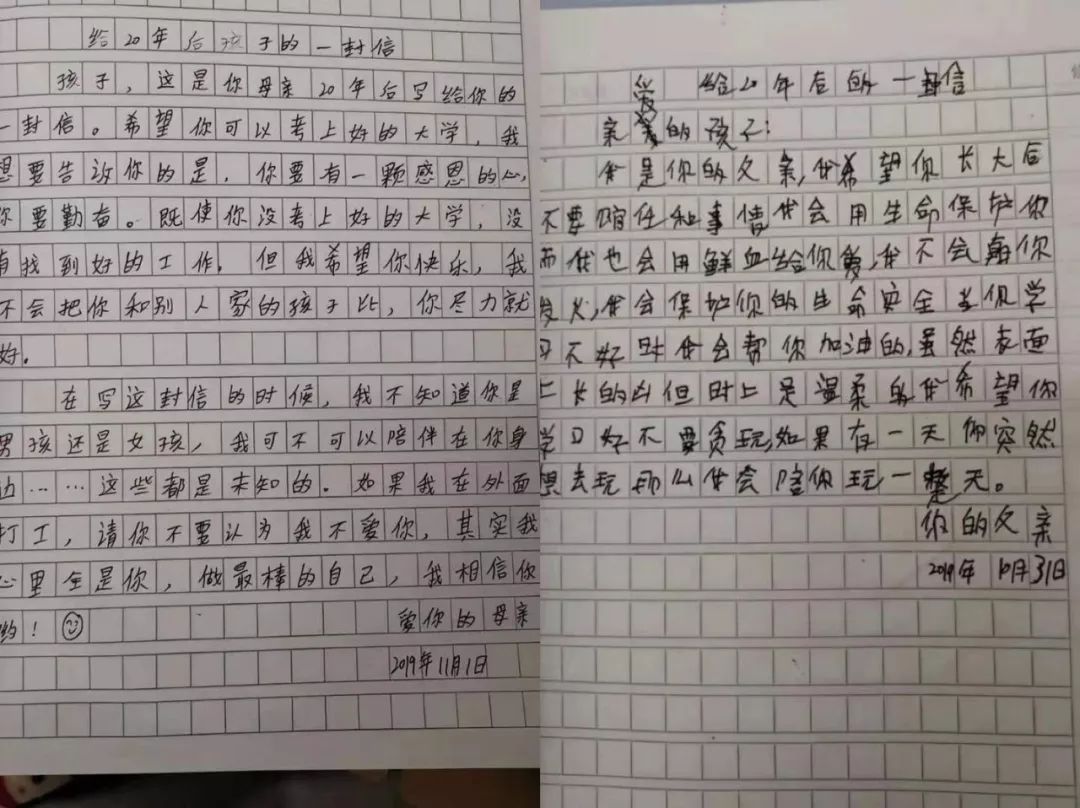 给20年后孩子的一封信
孩子，这是你母亲20年后写给你的
一封信。希望你可以考上好的大学，我
想要告诉你的是，你要有一颗感恩的心，
你要勤奋。既使你没考上好的大学，没
有找到好的工作，但我希望你快乐，我
不会把你和别人家的孩子比，你尽力就
好。
在写这封信的时候，我不知道你是
男孩还是女孩，我可不可以陪伴在你身
边……这些都是未知的。如果我在外面
打工，请你不要认为我不爱你，其实我
心里全是你，做最棒的自己，我相信你
哟！
爱你的母亲
2019年11月1日
给20年后的一封信
亲爱的孩子：
我是你的父亲，我希望你长大后
不要 任和事情我会用生命保护你
而我也会用鲜血给你爱，我不会 你
发火，我会保护你的生命安全当你学
习不好时我会帮你加油的，虽然表面
上长的凶但时上是温柔的我希望你
学习好不要贪玩，如果有一天你突然
想去玩那么我会陪你玩一整天。
你的父亲
2019年10月31日